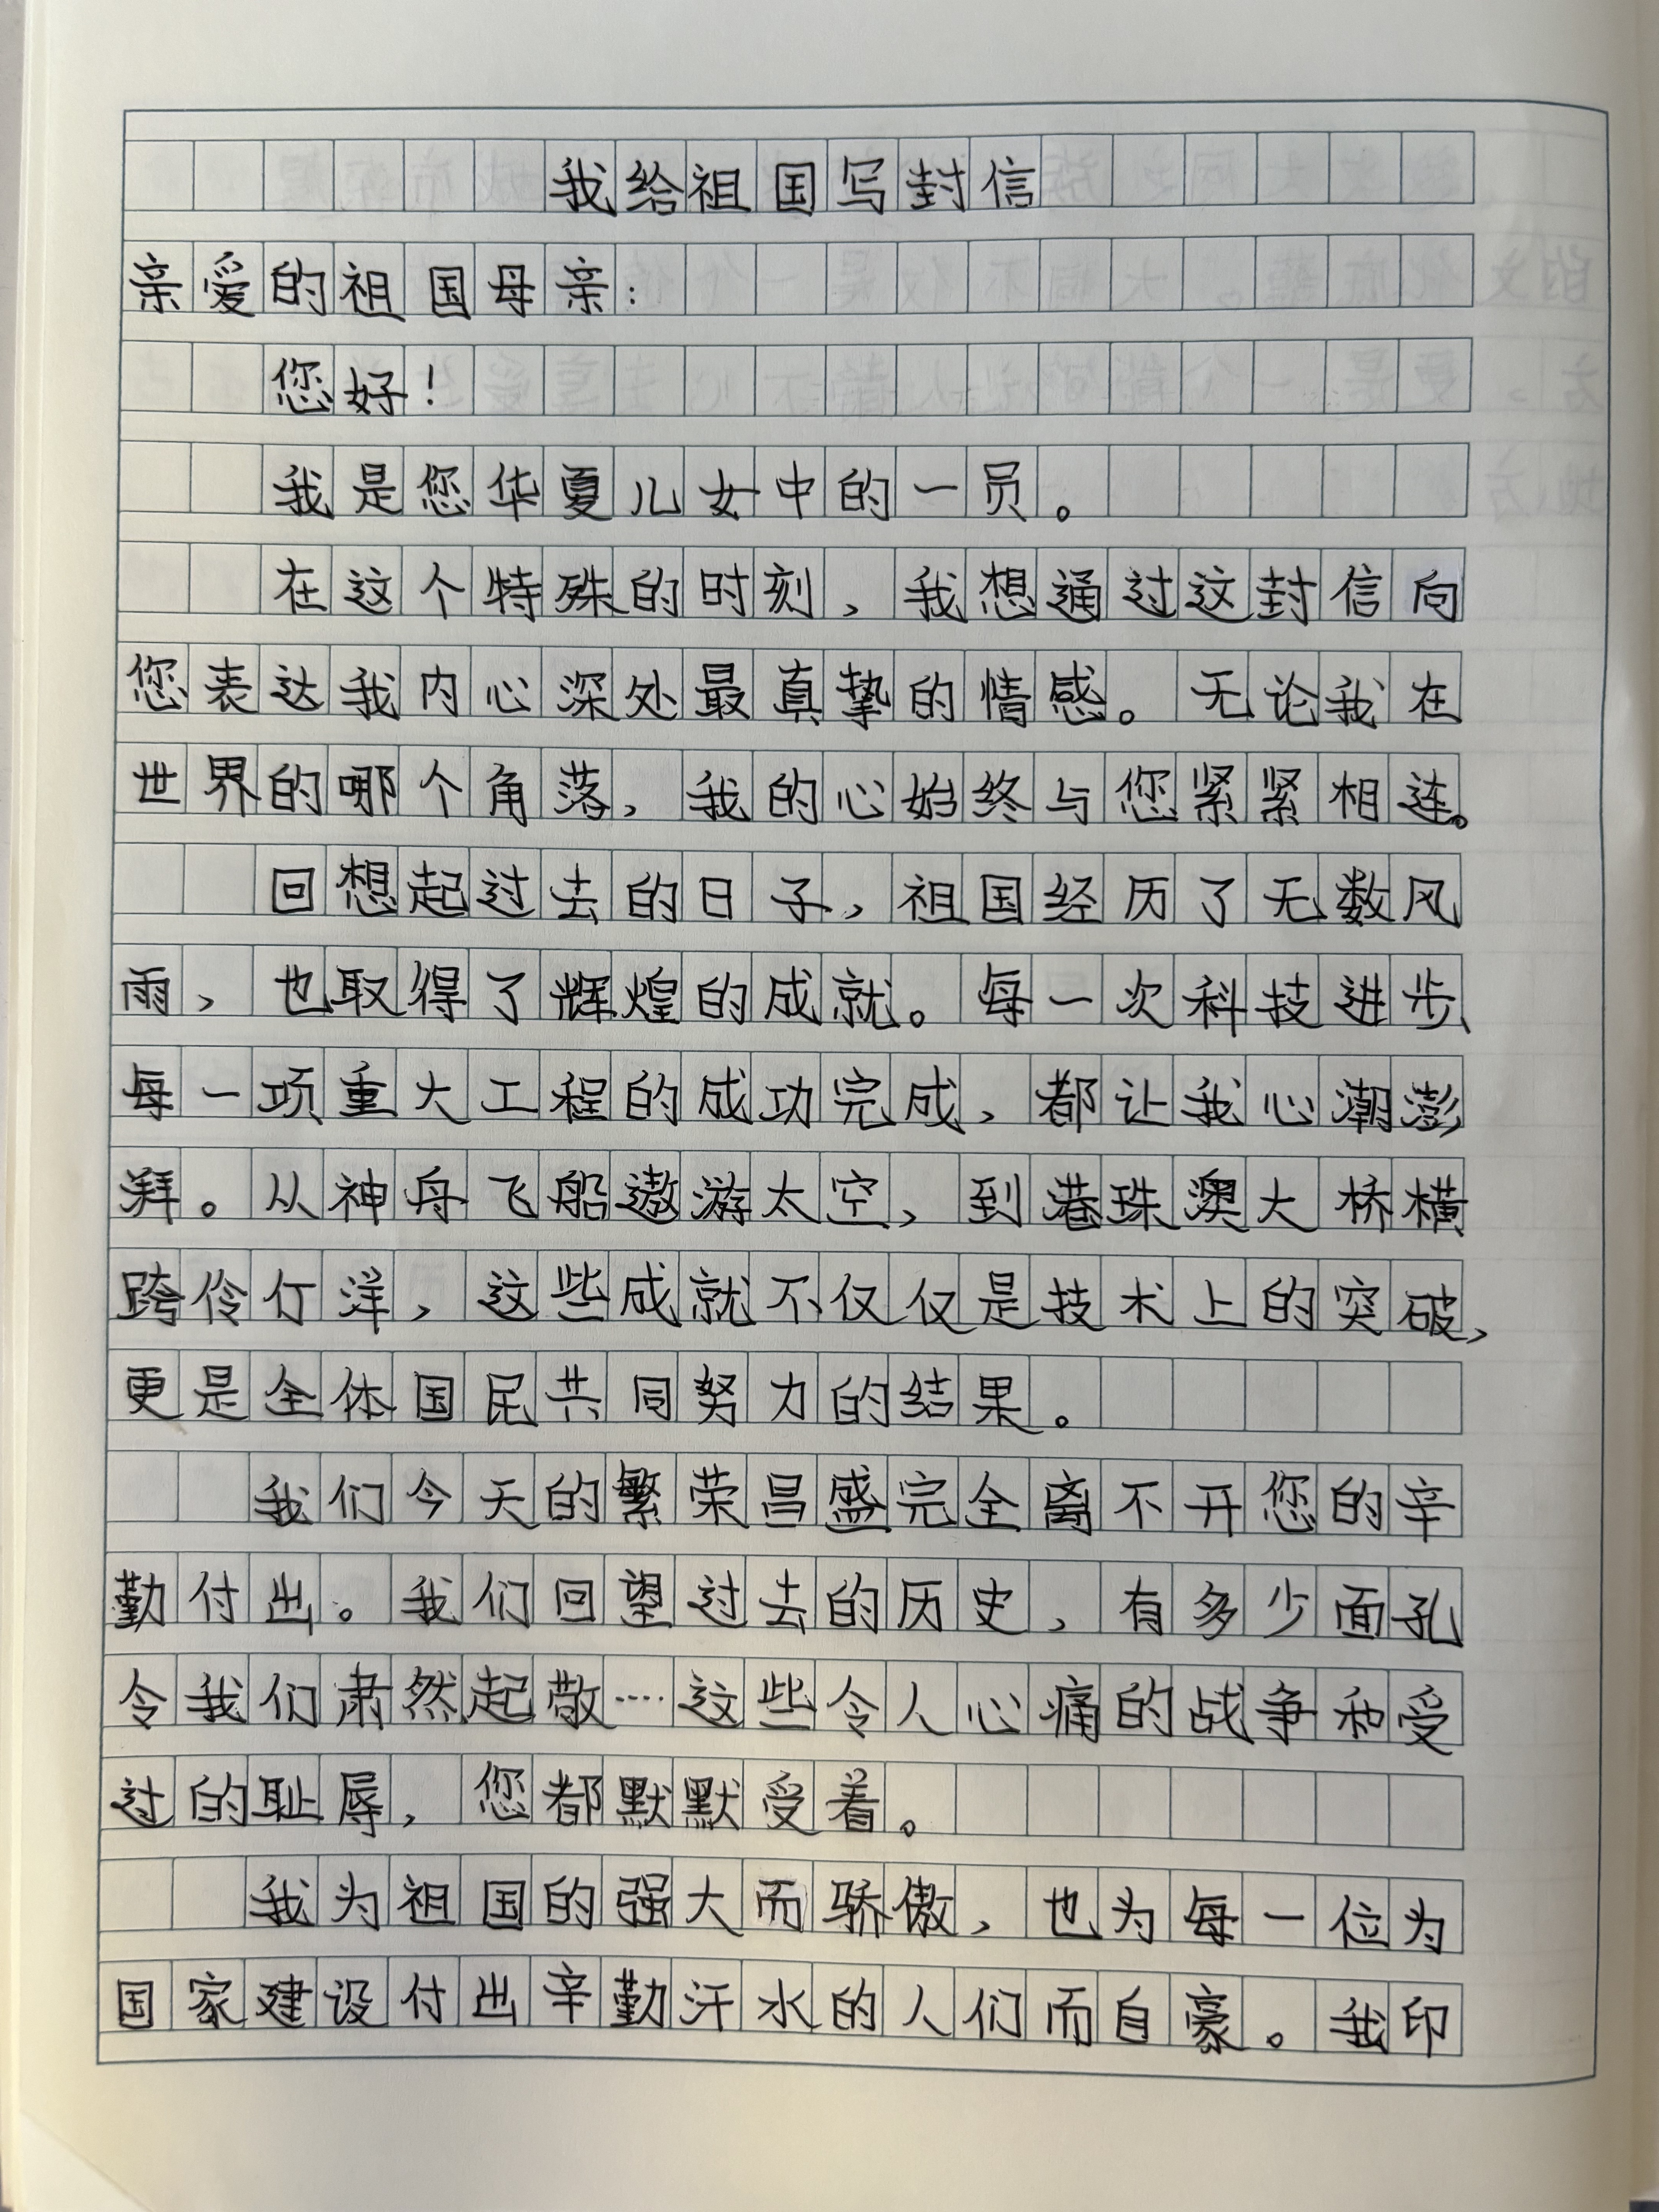 我给祖国写封信
亲爱的祖国母亲：
您好！
我是您华夏儿女中的一员。
在这个特殊的时刻，我想通过这封信向
您表达我内心深处最真挚的情感。无论我在
世界的哪个角落，我的心始终与您紧紧相连。
回想起过去的日子，祖国经历了无数风
雨，也取得了辉煌的成就。每一次科技进步、
每一项重大工程的成功完成，都让我心潮澎
湃。从神舟飞船遨游太空，到港珠澳大桥横
跨伶仃洋，这些成就不仅仅是技术上的突破，
更是全体国民共同努力的结果。
我们今天的繁荣昌盛完全离不开您的辛
勤付出。我们回望过去的历史，有多少面孔
令我们肃然起敬……这些令人心痛的战争和受
过的耻辱，您都默默受着。
我为祖国的强大而骄傲，也为每一位为
国家建设付出辛勤汗水的人们而自豪。我印